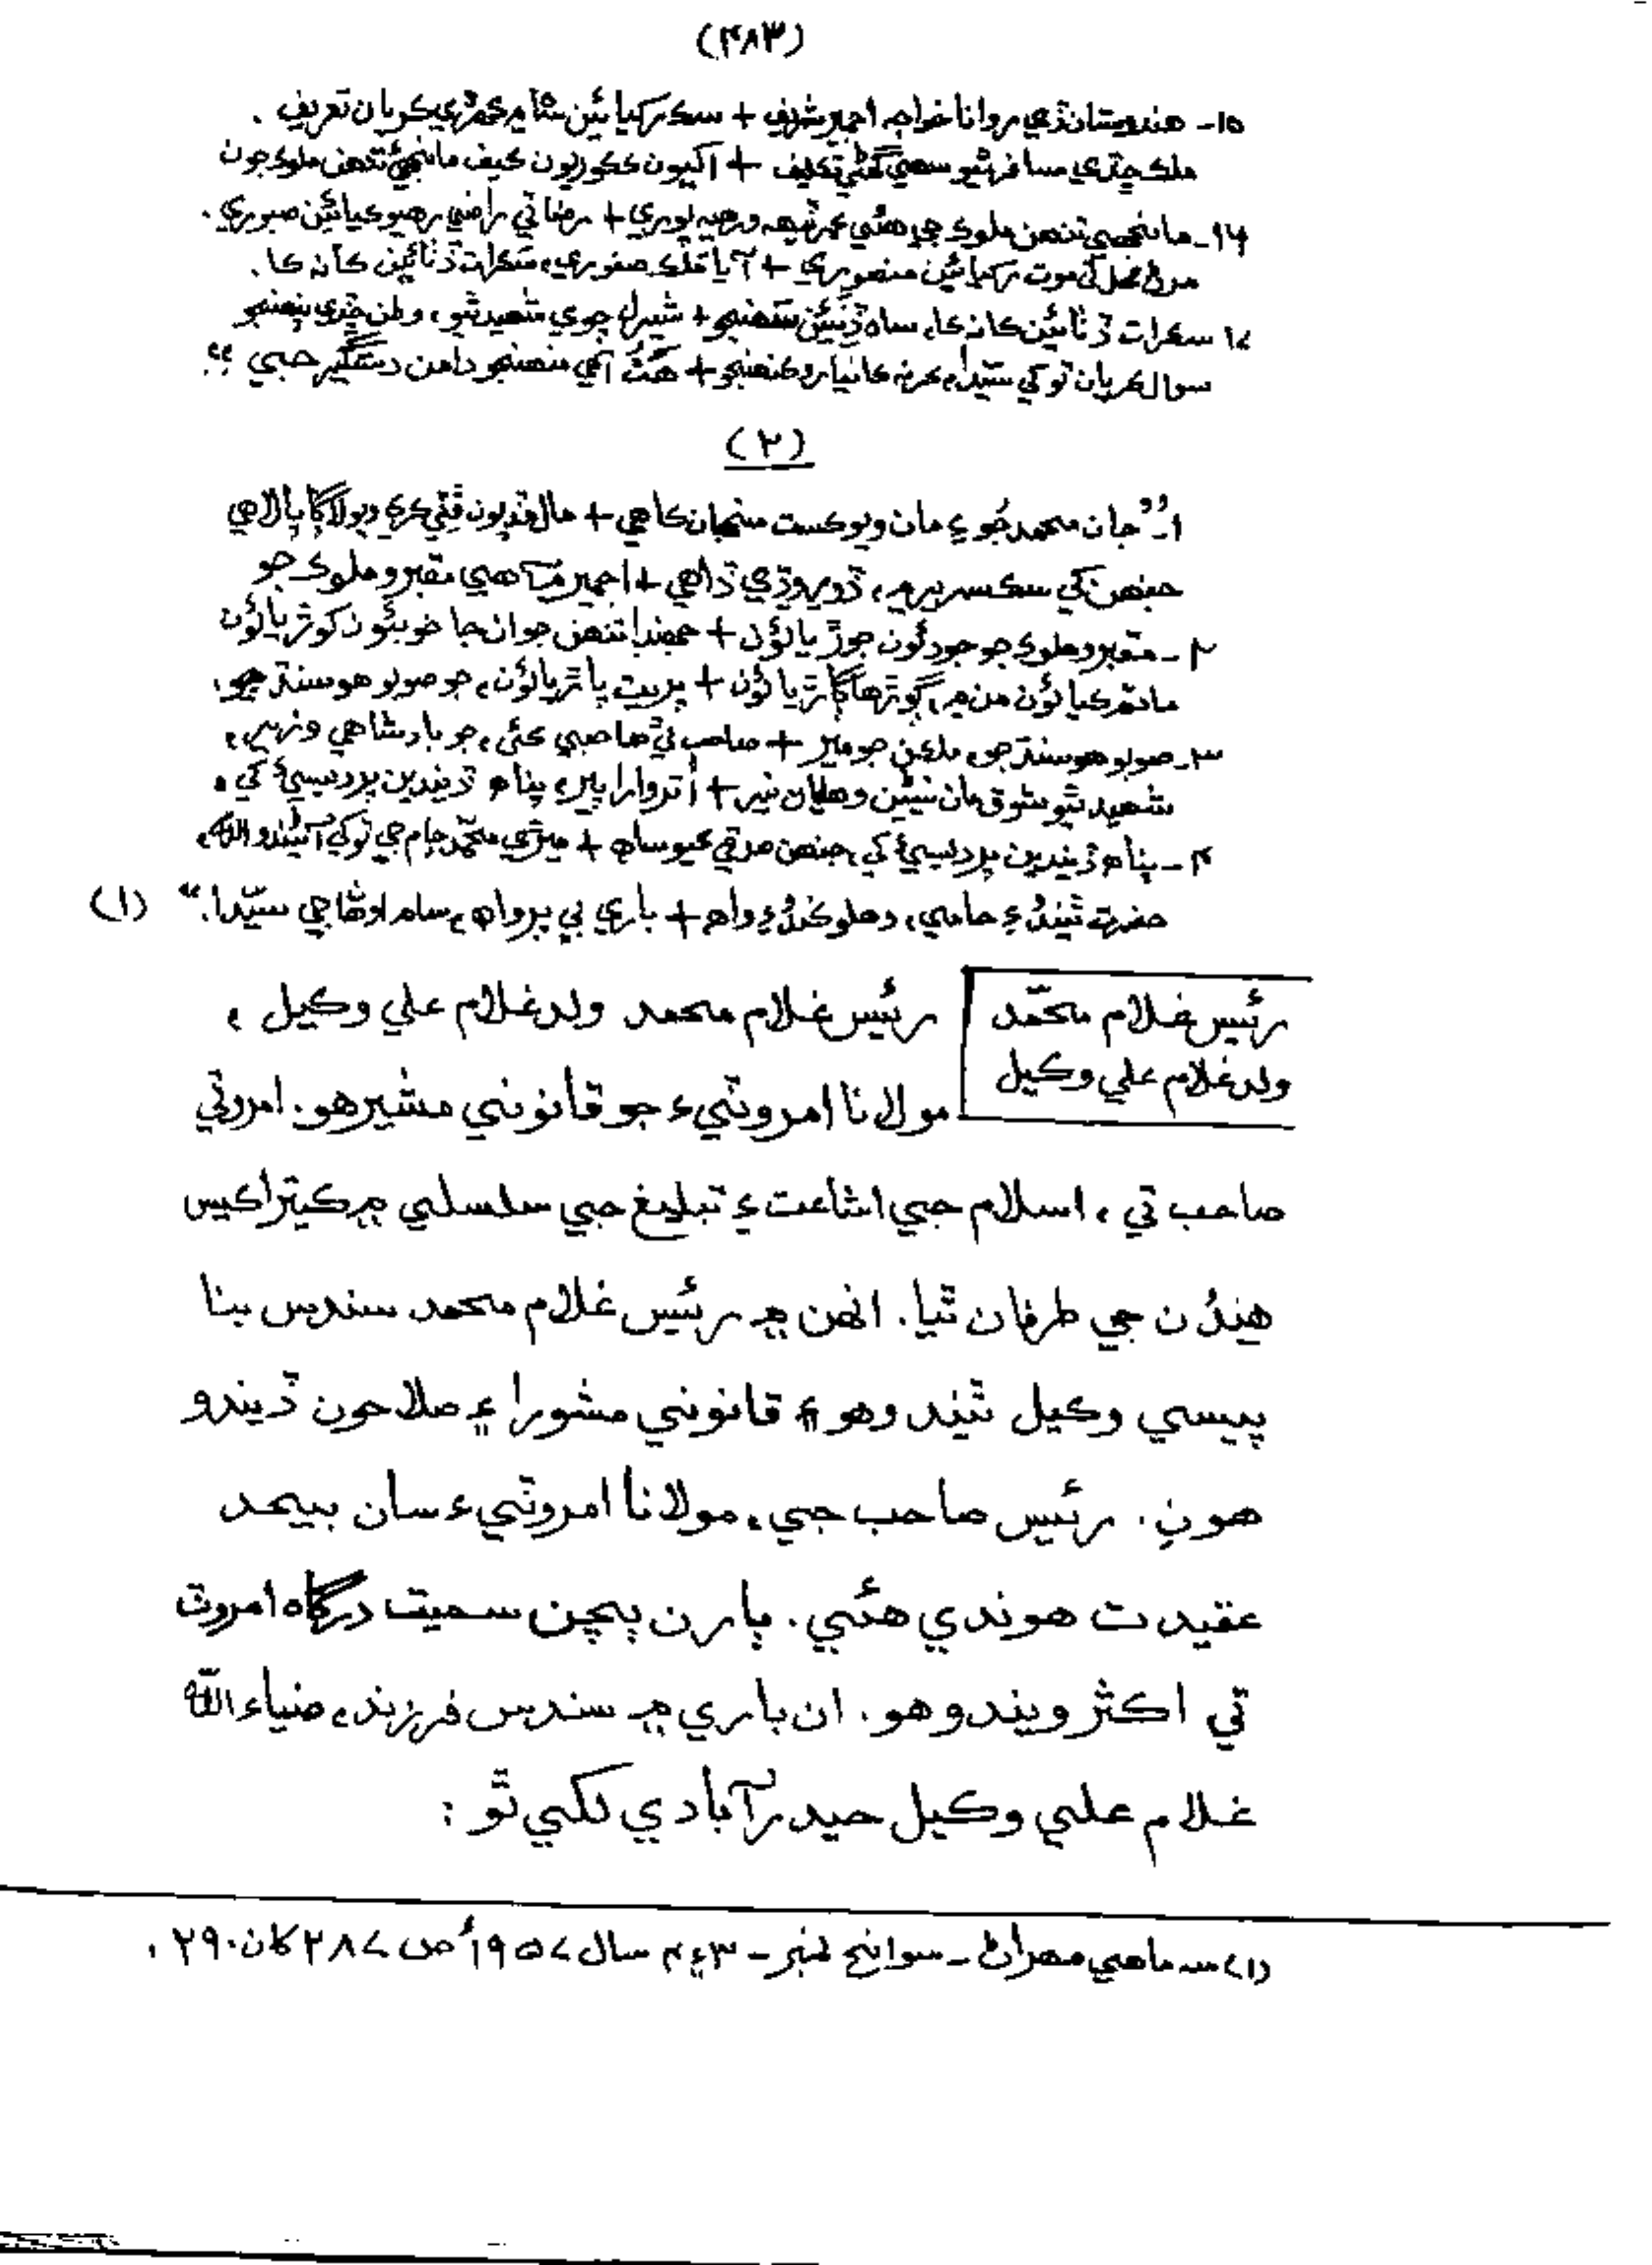 (۴۸۳)
۱۵- هندستان ڏي روانا خواجه اجمير شريف + سڪر کيائين شام ڪهڙي ڪريان تعريف.
ملڪ ڇڏي مسافر ٿيو سهي گهڻي تڪليف + اکيون ڪيف مانجهيءَ تنهن ملوڪ جون
۱۶- مانجهي تنهن ملوڪ جي هئي عمر ٽيهه ورهيه پوري + رضا تي راضي رهيو ڪيائين صبوري.
موت کيائين منصوري + آيا ملڪ سڪرات ڏنائين ڪان ڪا.
۱۷ سڪرات ڏنائين ڪان ڪا، ساه ڏنئين سنهنجو + شهيد ٿيو، وطن ڇڏي پنهنجو
سوال ڪريان توکي سيدا، عرض + هٿ آهي منهنجو دامن دستگير جي"
(۲)
۱- "جان محمد ڄوءِ مان ويو + مال ڦٽي ڪري ويو لاڳاپا لاهي
جنهن کي سڪ سرير ۾، ڏور وڏي ڏاهي + اجمير ۾ آهي مقبرو ملوڪ جو
۲- مقبرو ملوڪ جو جوڙيائون + جهنڊا تنهن جوان جا کوڙيائون
ماتم کيائون من ۾، ڳوڙها ڳاڙيائون + پريت پاڙيائون، جو صوبو هو سنڌ جو.
۳- صوبو هو سنڌ جو، ملڪن جو مير + صاحب ٿي صاحبي ڪئي، جو بادشاهي وزير،
شهيد ٿيو شوق مان نيڻين وهايان نير + اتر وارا پير، پناهه ڏيندين پرديسيءَ کي،
۴- پناهه ڏيندين پرديسيءَ کي، جنهن صدقي ڪيو ساهه + ميڙي محمد ڄام جي توکي آڻيندو الله،
حضرت ٿيندءِ حامي، وهلو ڪندءِ واهه + باري بي پرواهه، سام اوهان جي سيدا." (۱)
رئيس غلام محمّد
ولد غلام علي وڪيل
رئيس غلام محمد ولد غلام علي وڪيل،
مولانا امروٽيءَ جو قانوني مشير هو. امروٽي
صاحب تي، اسلام جي اشاعت ۽ تبليغ جي سلسلي ۾ ڪيترا ڪيس
هندُن جي طرفان ٿيا. انهن ۾ رئيس غلام محمد سندس بنا
پيسي وڪيل ٿيندو هو ۽ قانوني مشورا ۽ صلاحون ڏيندو
هون. رئيس صاحب جي، مولانا امروٽيءَ سان بيحد
عقيدت هوندي هئي. ٻارن ٻچن سميت درگاه امروٽ
تي اڪثر ويندو هو. ان باري ۾ سندس فرزند، ضياءالله
غلام علي وڪيل حيدرآبادي لکي ٿو:
(۱) سه ماهي مهراڻ - سوانح نمبر - ۳ ۽ ۴ سال ۱۹۵۷ ص ۲۸۷ کان ۲۹۰.